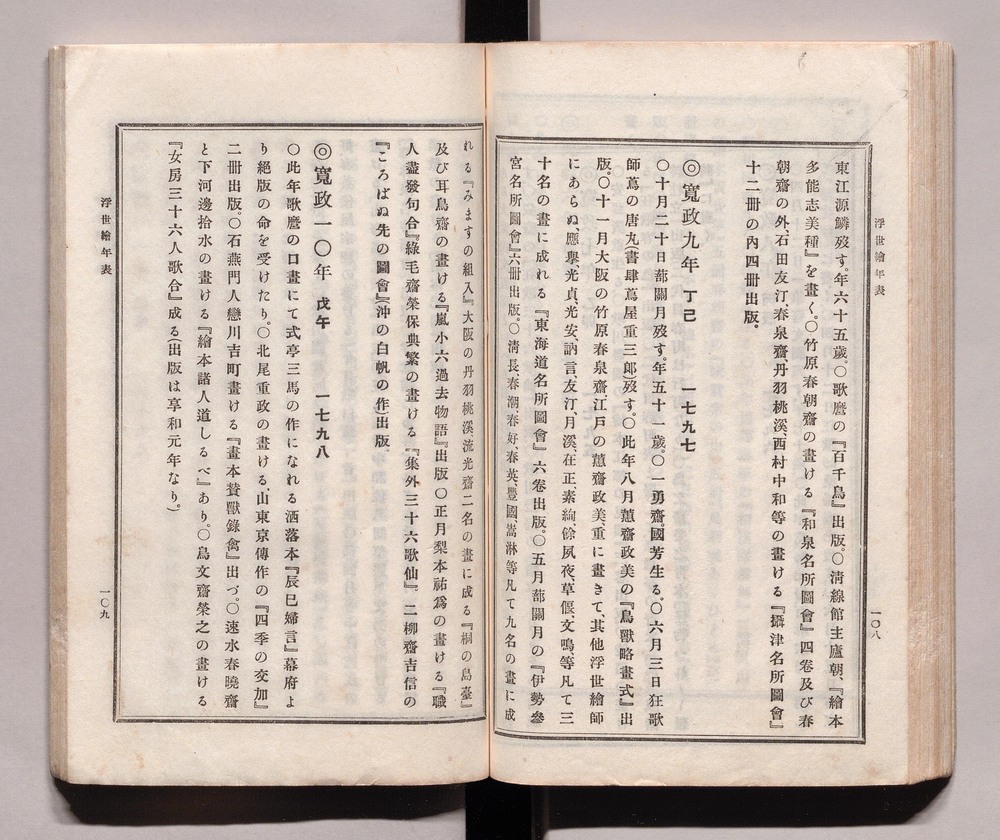 浮世繪年表
一〇八
東江源鱗歿す。年六十五歲。〇歌麿の『百千鳥』出版。〇淸線館主廬朝、『繪本
多能志美種』を畫く。〇竹原春朝齋の畫ける『和泉名所圖會』四卷及び春
朝齋の外、石田友汀、春泉齋、丹羽桃溪、西村中和等の畫ける『攝津名所圖會』
十二冊の內四冊出版。
◎寬政九年 丁巳 一七九七
〇十月二十日蔀關月歿す。年五十一歲。〇一勇齋國芳生る。〇六月三日狂歌
師蔦の唐丸(書肆蔦屋重三郞)歿す。〇此年八月蕙齋政美の『鳥獸略畫式』出
版。〇十一月大阪の竹原春泉齋、江戶の蕙齋政美、重に畫きて、其他浮世繪師
にあらぬ、應擧、光貞、光安、訥言、友汀、月溪、在正、素絢、餘夙夜、草偃、文鳴等凡て三
十名の畫に成れる『東海道名所圖會』六卷出版。〇五月蔀關月の『伊勢參
宮名所圖會』六冊出版。〇淸長、春潮、春好、春英、豐國、嵩淋等凡て九名の畫に成
れる『みますの組入』大阪の丹羽桃溪、流光齋二名の畫に成る『桐の島臺』
及び耳鳥齋の畫ける『嵐小六過去物語』出版〇正月梨本祐爲の畫ける『職
人盡發句合』綠毛齋榮保典繁の畫ける『集外三十六歌仙』、二柳齋吉信の
『ころばぬ先の圖會』(沖の白帆の作)出版、
◎寬政一〇年 戊午 一七九八
〇此年歌麿の口畫にて式亭三馬の作になれる洒落本『辰巳婦言』幕府よ
り絕版の命を受けたり。〇北尾重政の畫ける、山東京傳作の『四季の交加』
二冊出版。〇石燕門人戀川吉町畫ける『畫本賛獸錄禽』出づ。〇速水春曉齋
と下河邊拾水の畫ける『繪本諸人道しるべ』あり。〇鳥文齋榮之の畫ける
『女房三十六人歌合』成る(出版は享和元年なり。)
浮世繪年表
一〇九